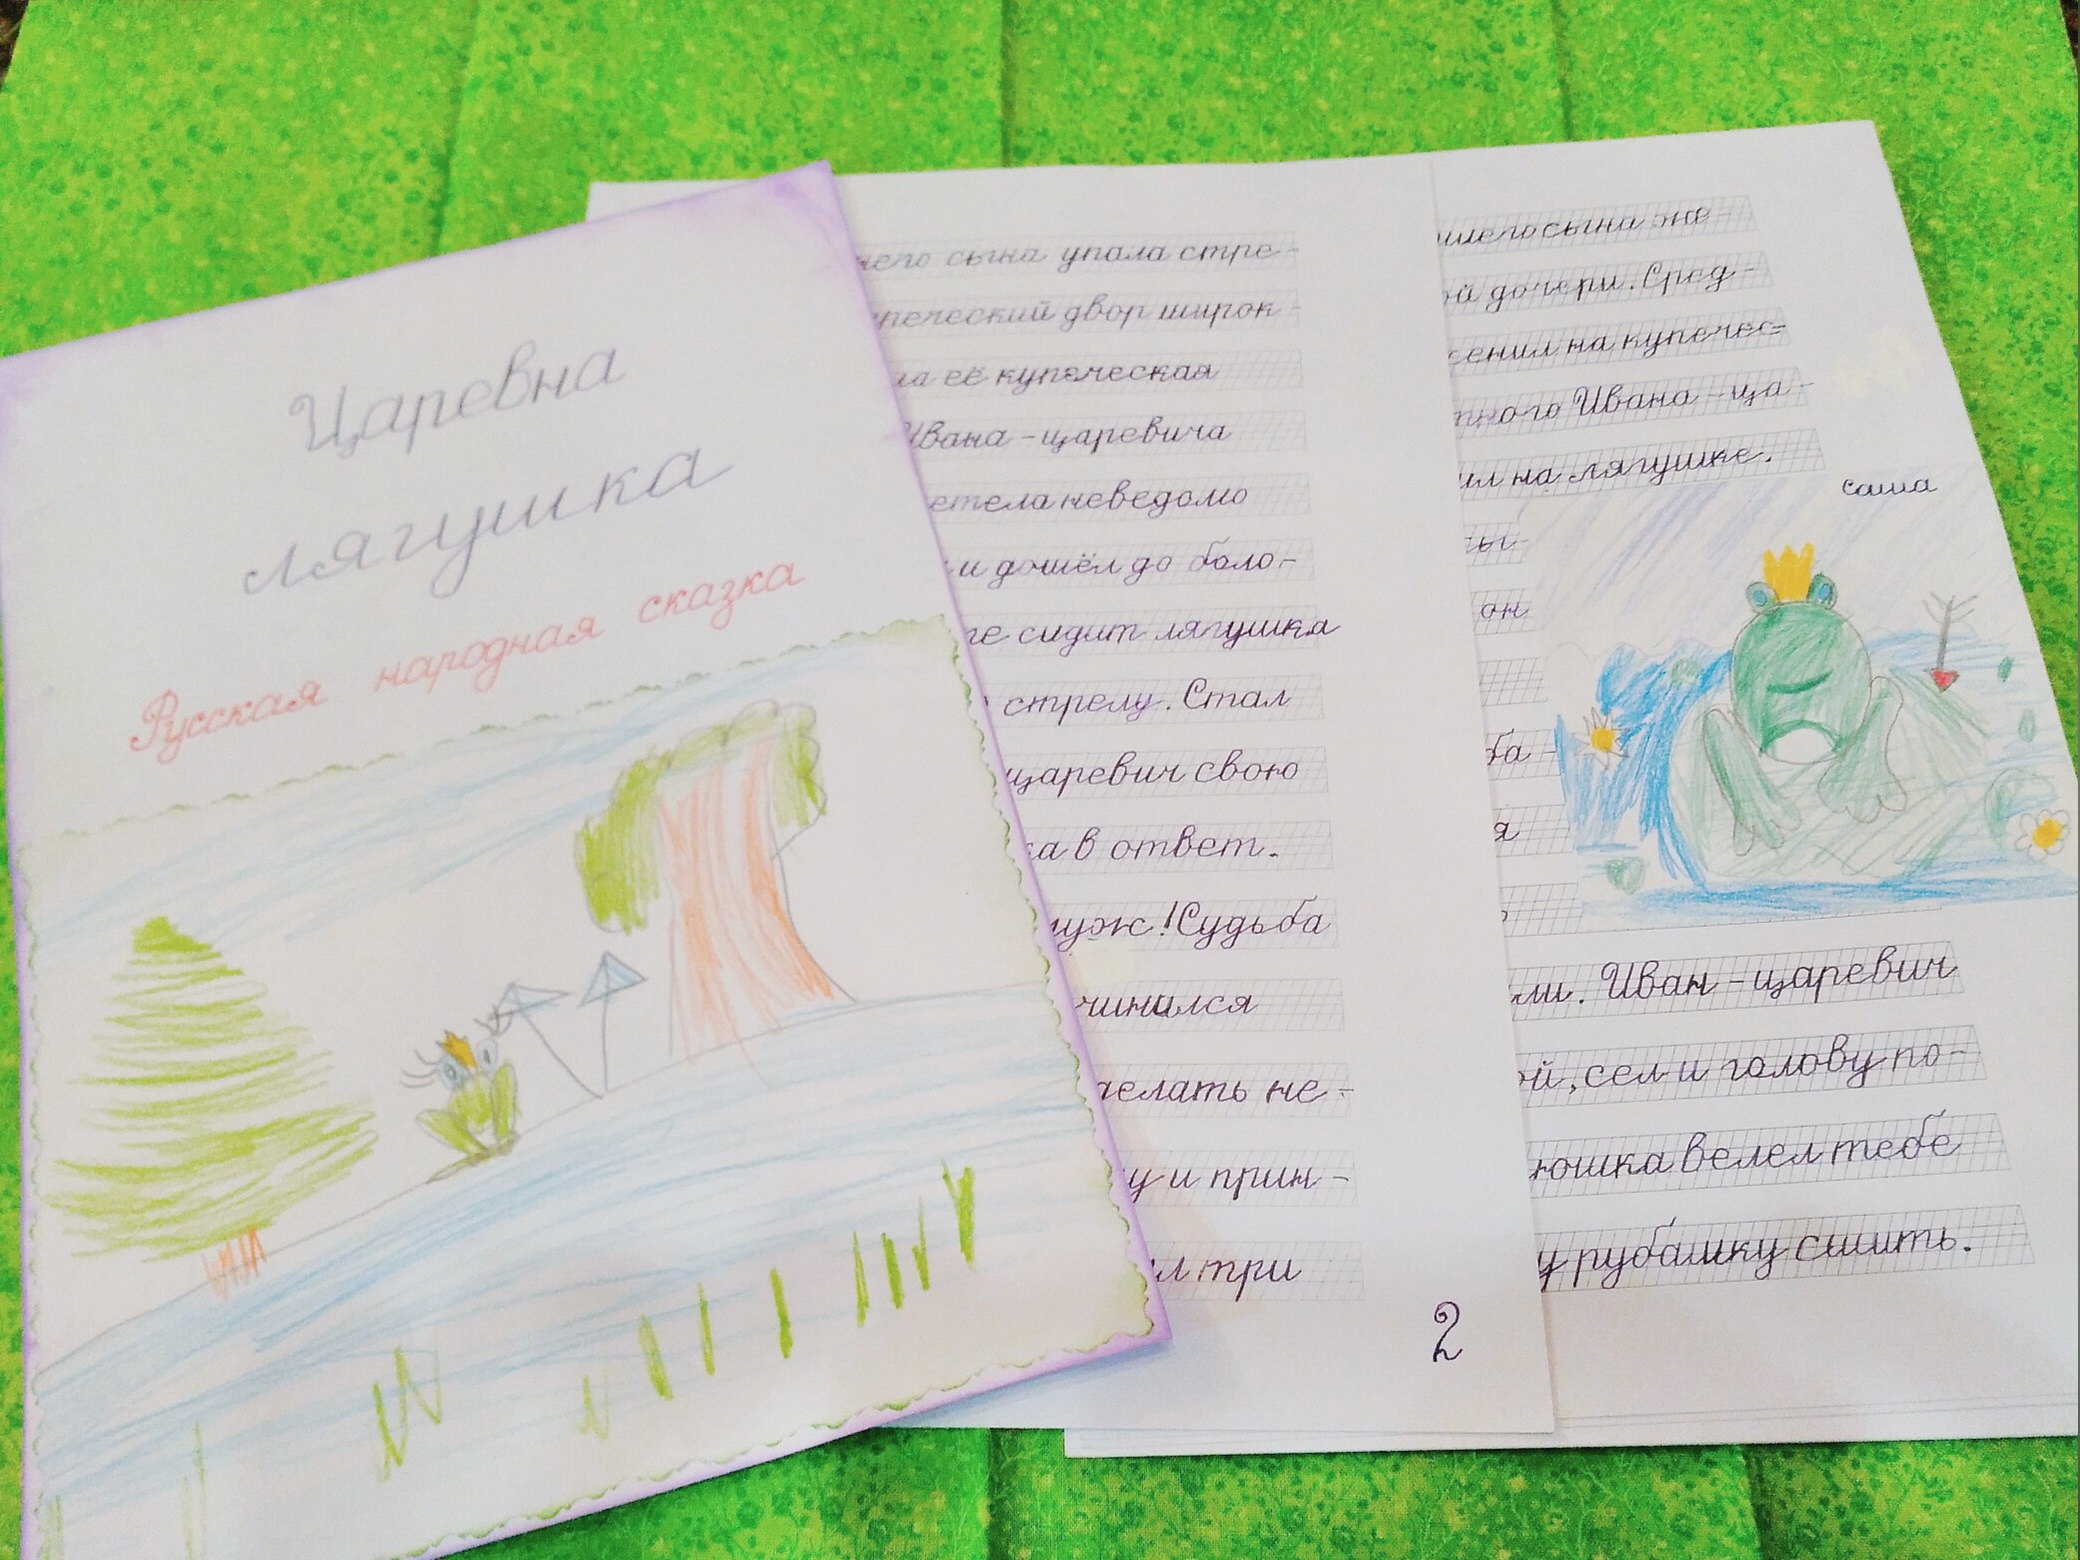 Царевна
лягушка
Русская народная сказка
него сына упала стре-
упеческий двор широк-
ла её купеческая
Ивана-царевича
етела неведомо
и дошёл до боло-
те сидит лягушка
стрелу. Стал
царевич свою
ка в ответ.
муж! Судьба
чинился
делать не-
у и прин-
ил три
2
шего сына же
ой дочери. Сред-
женил на купечес-
тного Ивана-ца-
ил на лягушке.
саша
зы-
он
ба-
я
ли. Иван-царевич
ой, сел и голову по-
юшка велел тебе
у рубашку сшить.